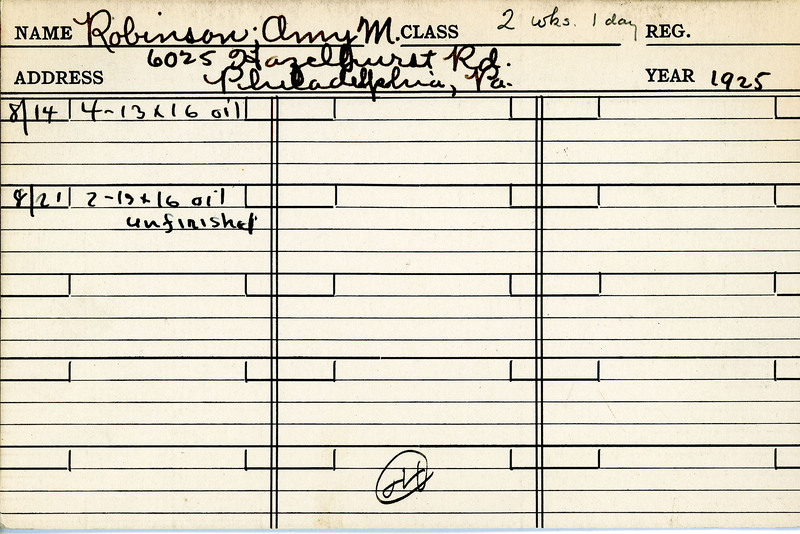 NAME Robinson: Amy M. CLASS 2 wks. 1 day REG.
ADDRESS 6025 Hazelhurst Rd.
Philadelphia, Pa. YEAR 1925
8/14 4-13x16 oil
8/21 2-13x16 oil
unfinished